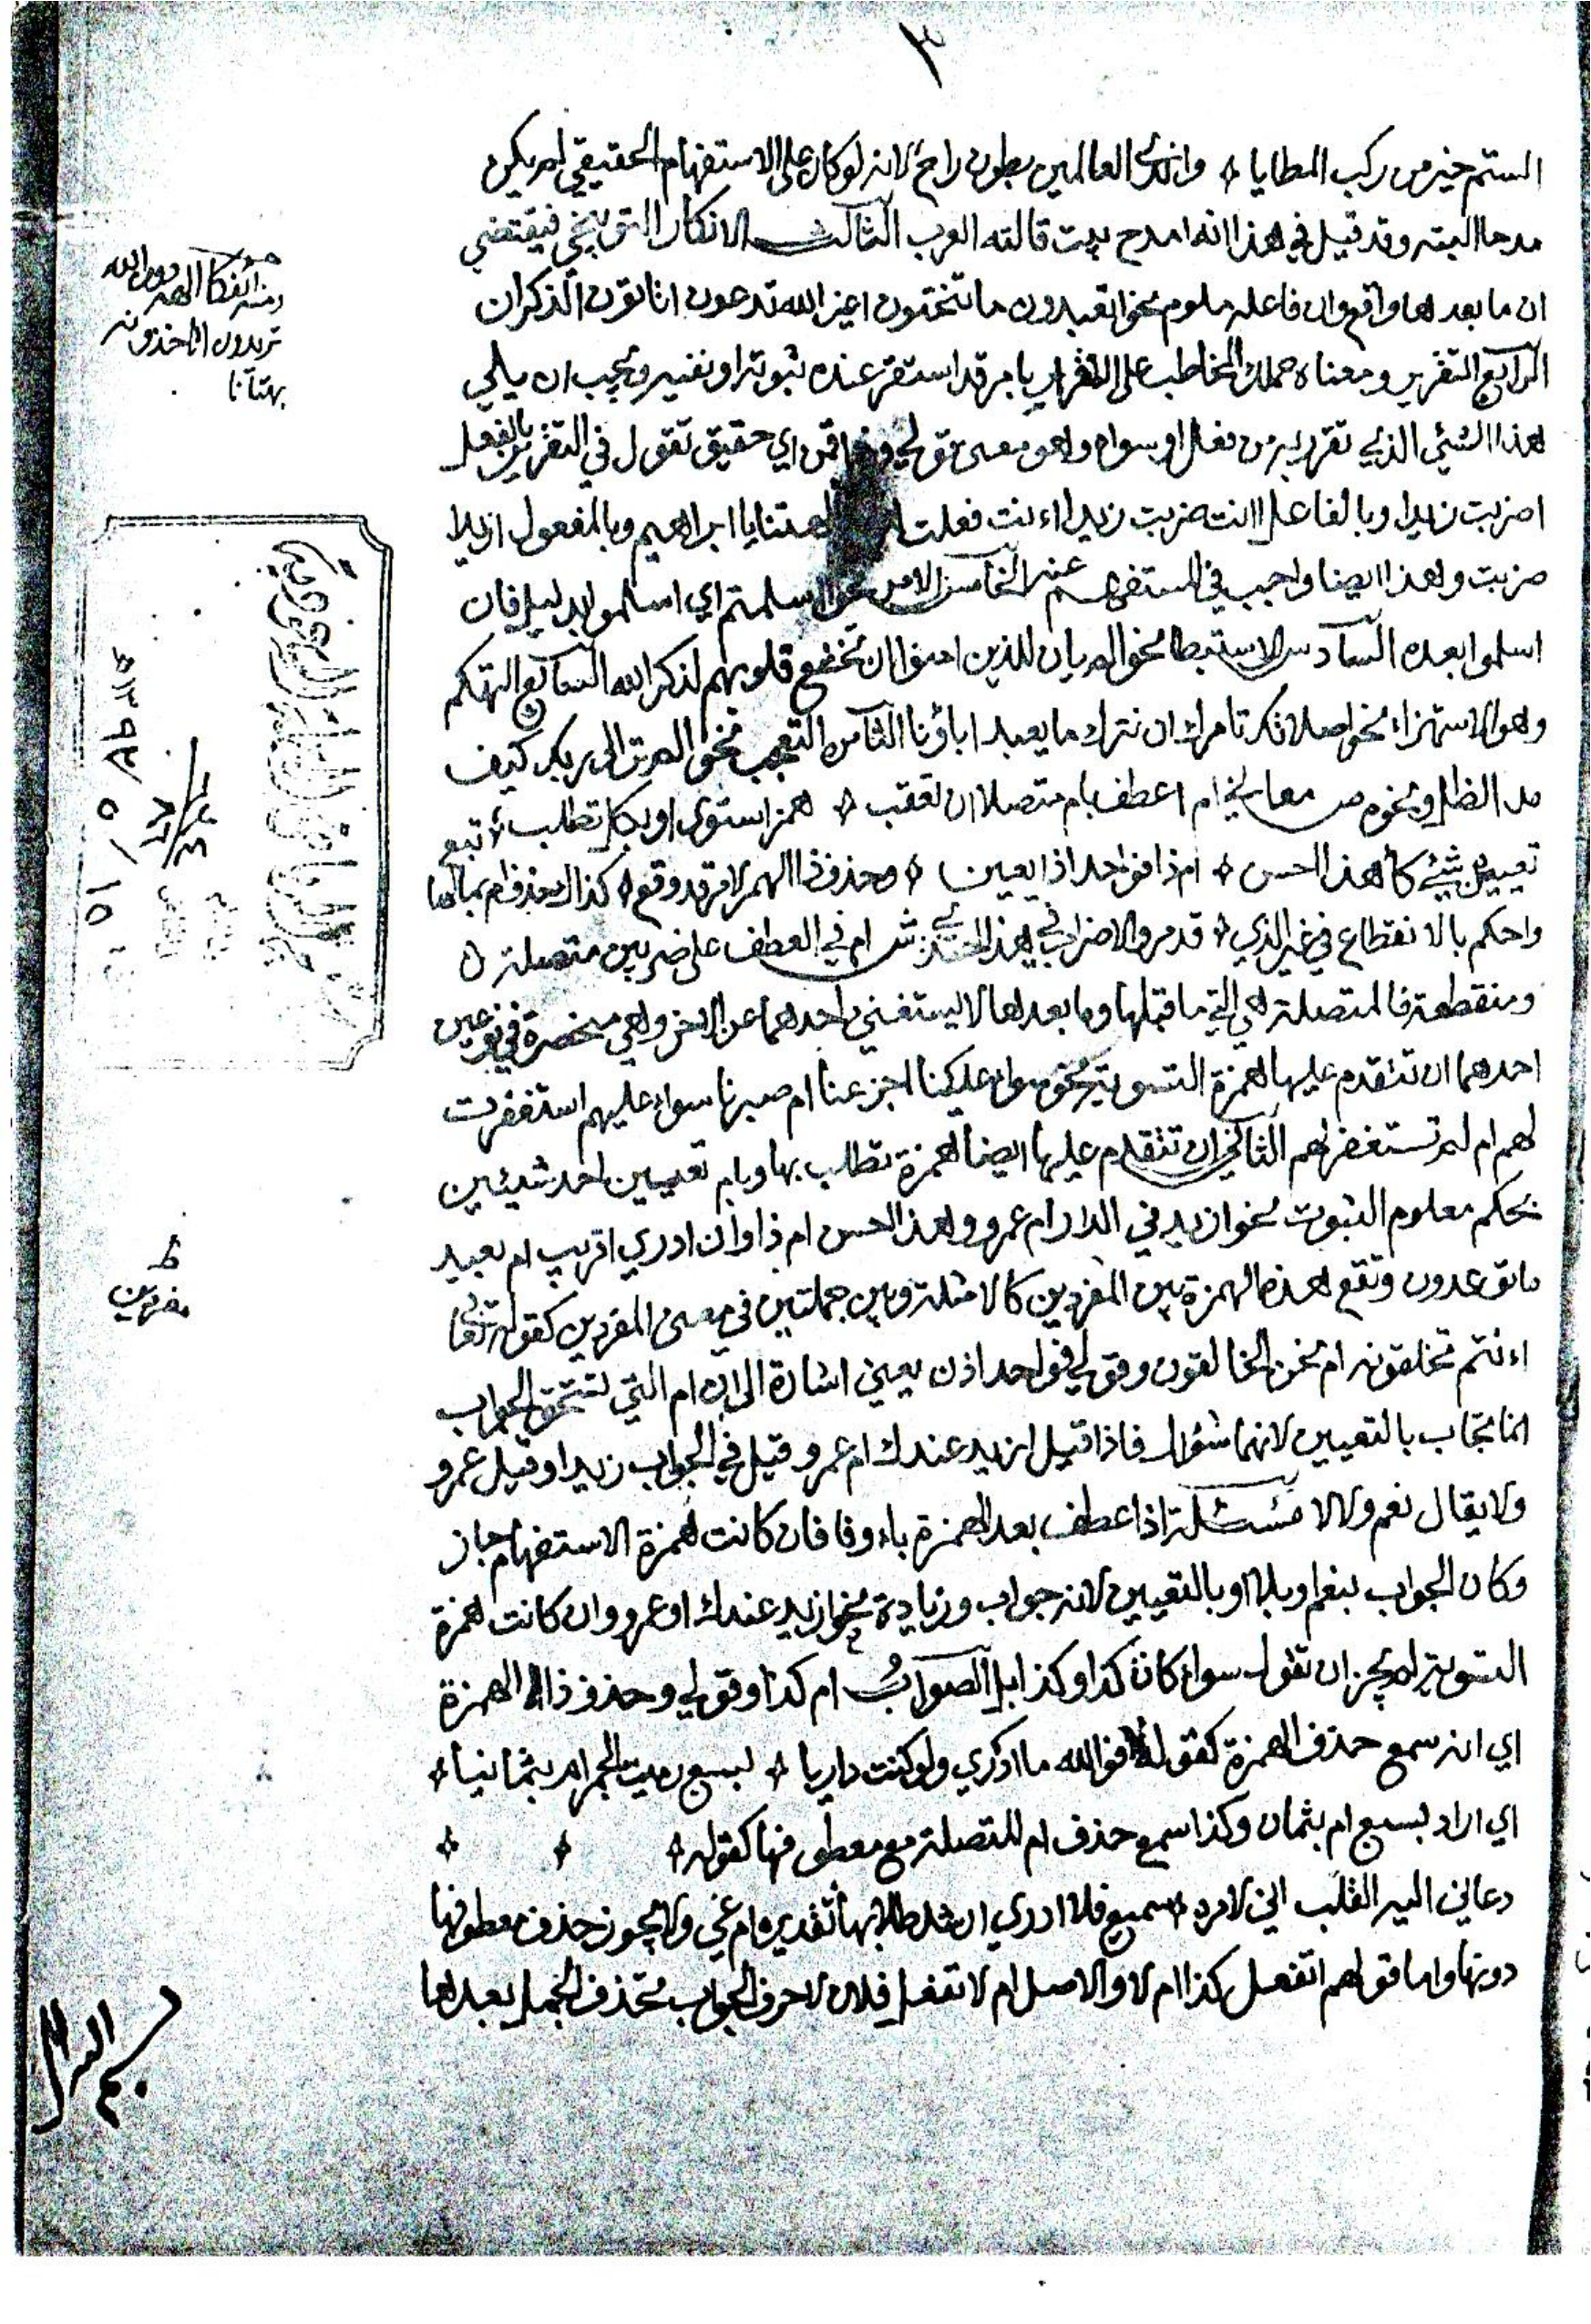 ٣
الستم خير من ركب المطايا وانداي العالمين بطون راح لانه لو كان على الاستفهام الحقيقي لم يكن
مدحا البته وقد قيل في هذا انه امدح بيت قالته العرب الثالث الانكار التوبيخي فيقتضي
ان ما بعدها واقع وان فاعله ملوم نحو اتعبدون ما تنحتون اغير الله تدعون اتاتون الذكران
الرابع التقرير ومعناه حملك المخاطب على الاقرار بامر قد استقر عنده ثبوته او نفيه ويجب ان يلي
هذا الشئ الذي تقرر به من فعل او سواه وهو معنى قولي قمن اي حقيق تقول في التقرير بالفعل
اضربت زيدا وبالفاعل اانت ضربت زيدا اءنت فعلت بالهتنا يا ابراهيم وبالمفعول ازيدا
ضربت وهذا ايضا واجب في المستفهم عنه الخامس الامر نحو ااسلمتم اي اسلموا بدليل فان
اسلموا بعده السادس الاستبطا نحو الم يان للذين امنوا ان تخشع قلوبهم لذكر الله السابع التهكم
وهو الاستهزاء نحو اصلاتك تامرك ان نترك ما يعبد اباؤنا الثامن التعجب نحو الم تر الى ربك كيف
مد الظل ونحوه ص معا لخ ام اعطف بام متصلا ان تعقب همز استوى او بكل تطلب تبع
تعيين شئ كاهذا الحسن ام ذا فواحد اذا يعين وحذف ذا الهمز لامر قد وقع كذاك حذف ام بمالها
واحكم بالانقطاع في غير الذي قد مر والاضراب في هذا ش ام في العطف على ضربين متصلة
ومنقطعة فالمتصلة هي التي ما قبلها وما بعدها لا يستغني احدهما عن الاخر وهي منحصرة في نوعين
احدهما ان تتقدم عليها همزة التسوية نحو سواء علينا اجزعنا ام صبرنا سواء عليهم استغفرت
لهم ام لم تستغفر لهم الثاني ان تتقدم عليها ايضا همزة تطلب بها وبام تعيين احد شيئين
بحكم معلوم الثبوت نحو ازيد في الدار ام عمرو واهذا الحسن ام ذا وان ادري اقريب ام بعيد
ما توعدون وتقع هذه الهمزة بين المفردين كالامثلة وبين جملتين في معنى المفردين كقوله تعا
اءنتم تخلقونه ام نحن الخالقون وقولي فواحد اذن يعني اشارة الى ان ام التي تستحق الجواب
انما تجاب بالتعيين لانها سؤال فاذا قيل ازيد عندك ام عمرو قيل في الجواب زيد او قيل عمرو
ولا يقال نعم ولا لا مسئلة اذا عطف بعد الهمزة باو فان كانت همزة الاستفهام جاز
وكان الجواب بنعم او بلا او بالتعيين لانه جواب وزيادة نحو ازيد عندك او عمرو وان كانت همزة
التسوية لم يجز ان تقول سواء كان كذا وكذا بل الصواب ام كذا وقولي وحذف ذا الهمزة
اي انه سمع حذف الهمزة كقوله فوالله ما ادري ولو كنت داريا لبسبع رميت الجمر ام بثمانيا
اي اراد بسبع ام بثمان وكذا سمع حذف ام المتصلة مع معطوفها كقوله
دعاني اليه القلب اني لامره سميع فلا ادري ارشد طلابها تقديره ام غي ولا يجوز حذف معطوفها
دونها واما قولهم اتفعل كذا ام لا والاصل ام لا تفعل فلان لاحرف الجواب تحذف الجمل بعدها
ومنه ائفكا الهة دون الله
تريدون اتاخذونه
بهتانا
ظ
مفردين